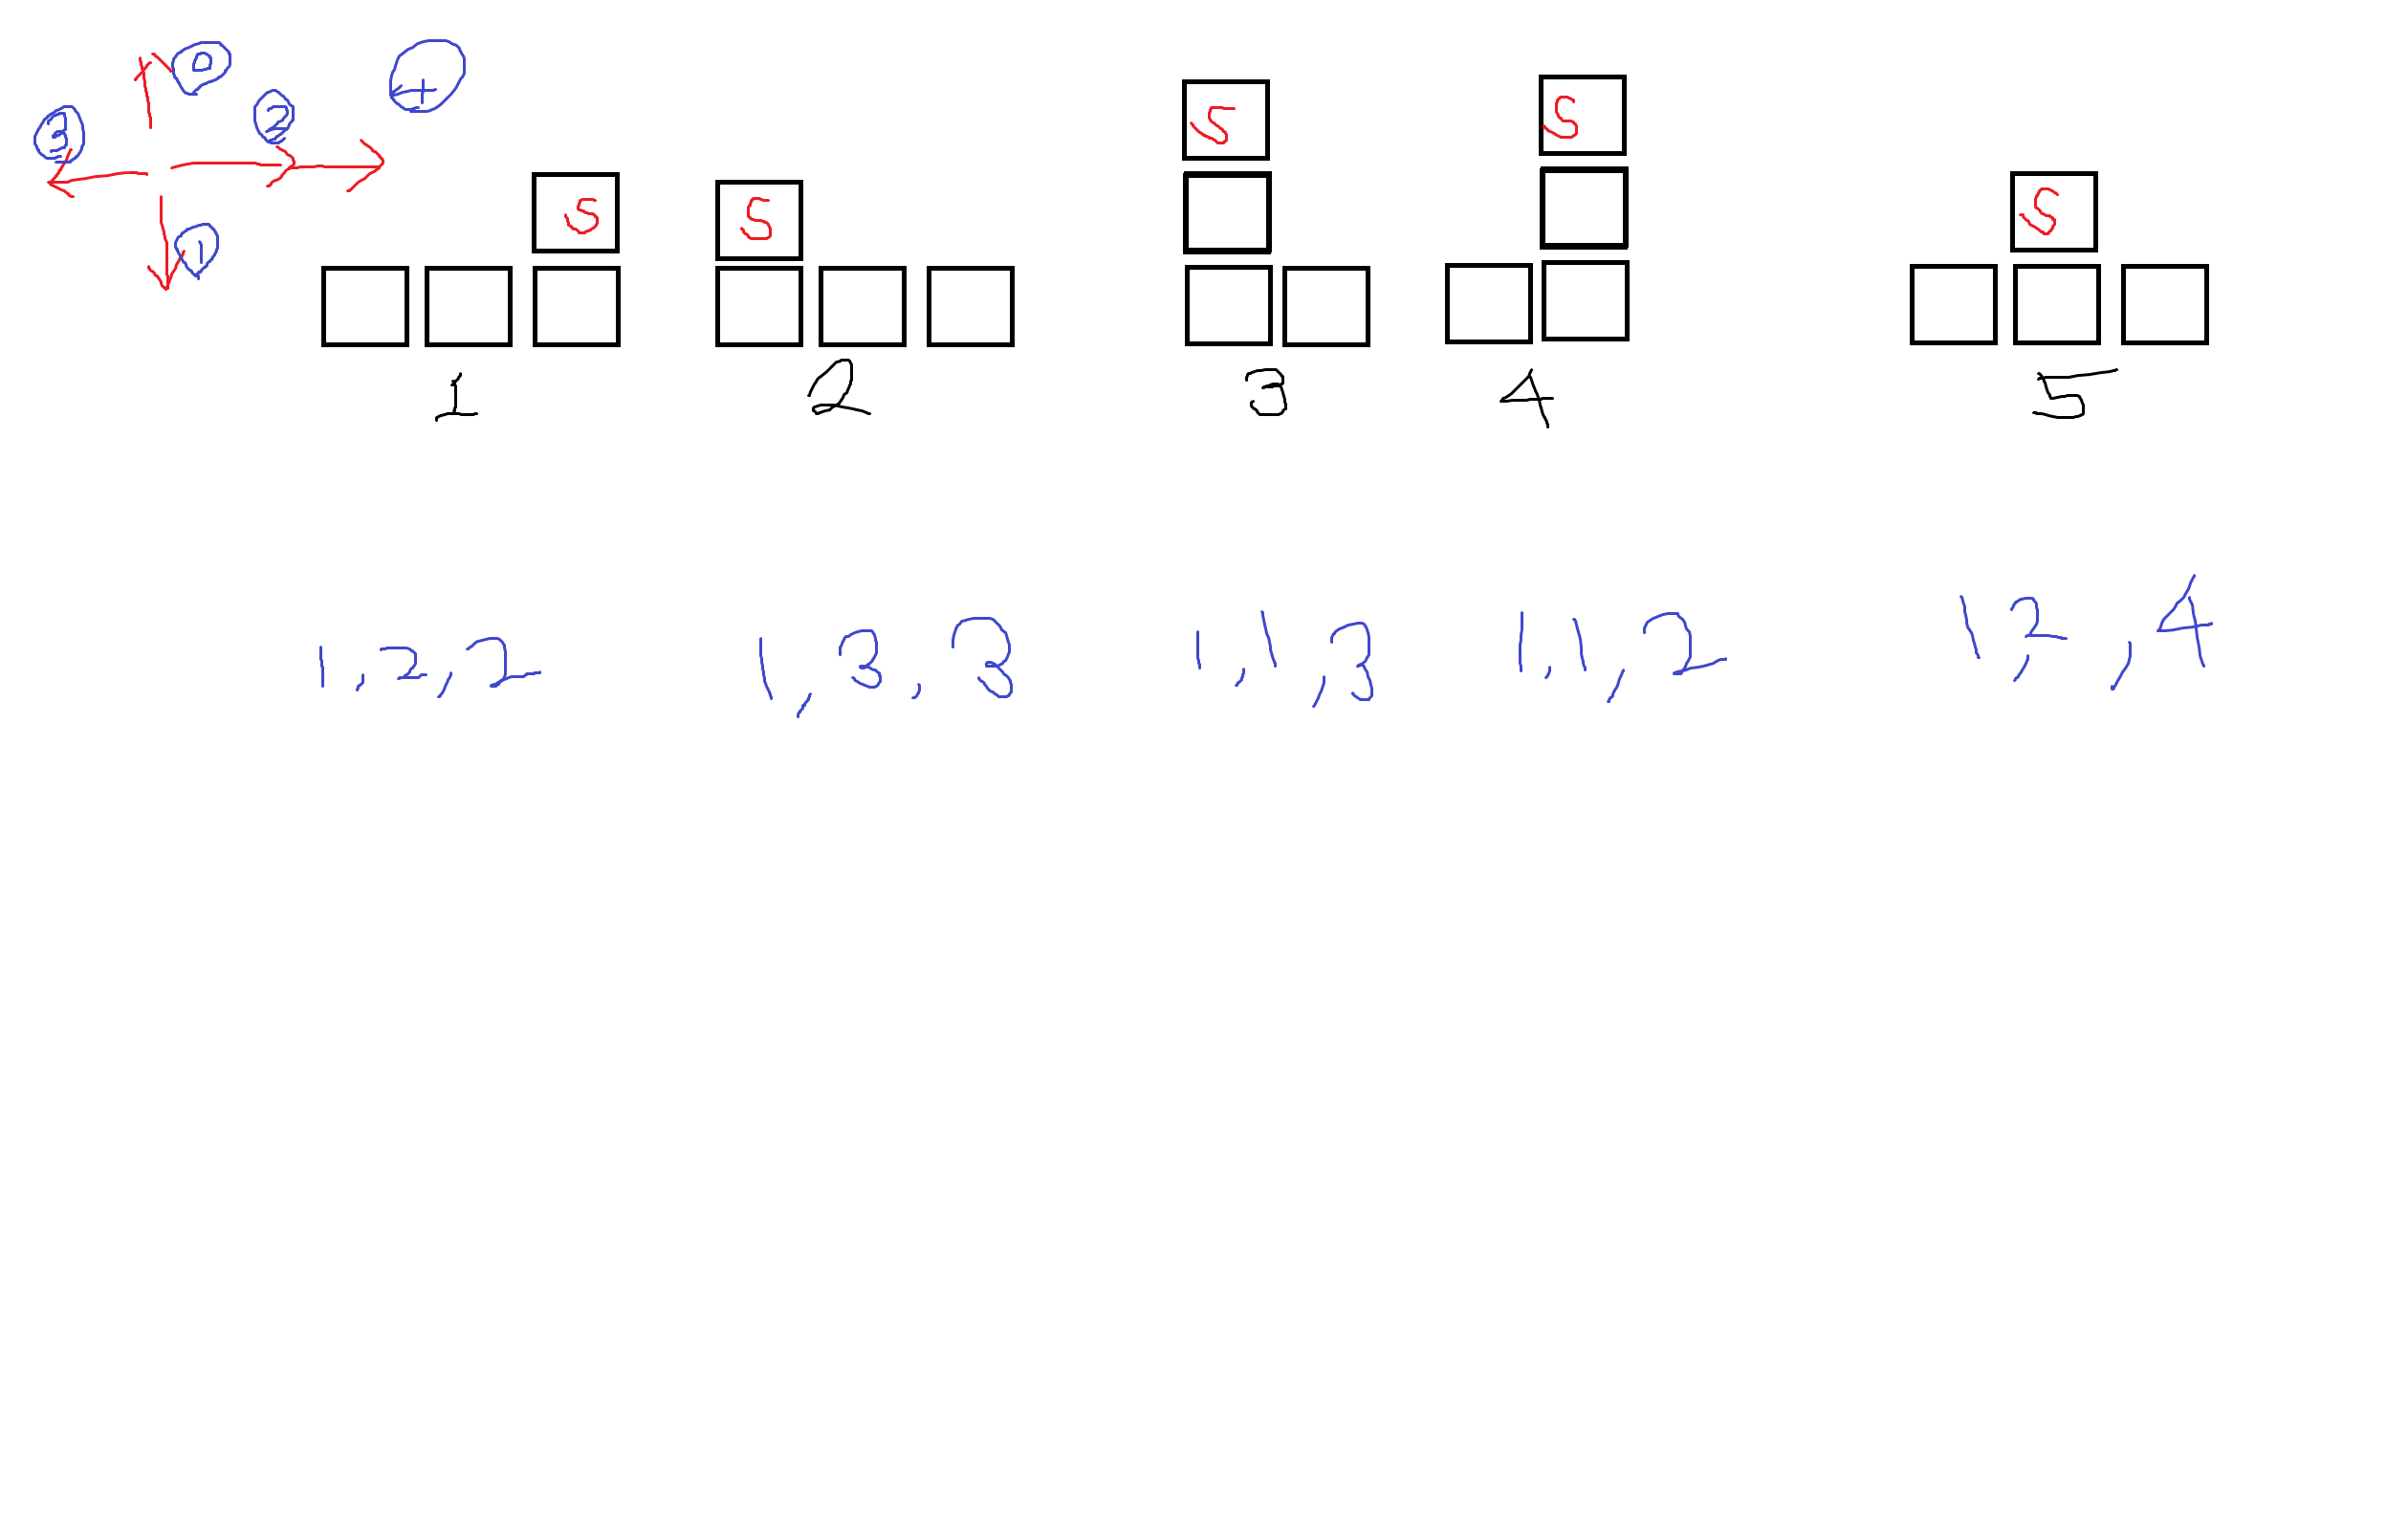 0
4
2
3
1
S S S S S
1 2 3 4 5
1,2,2 1,3,3 1,1,3 1,1,2 1,2,4